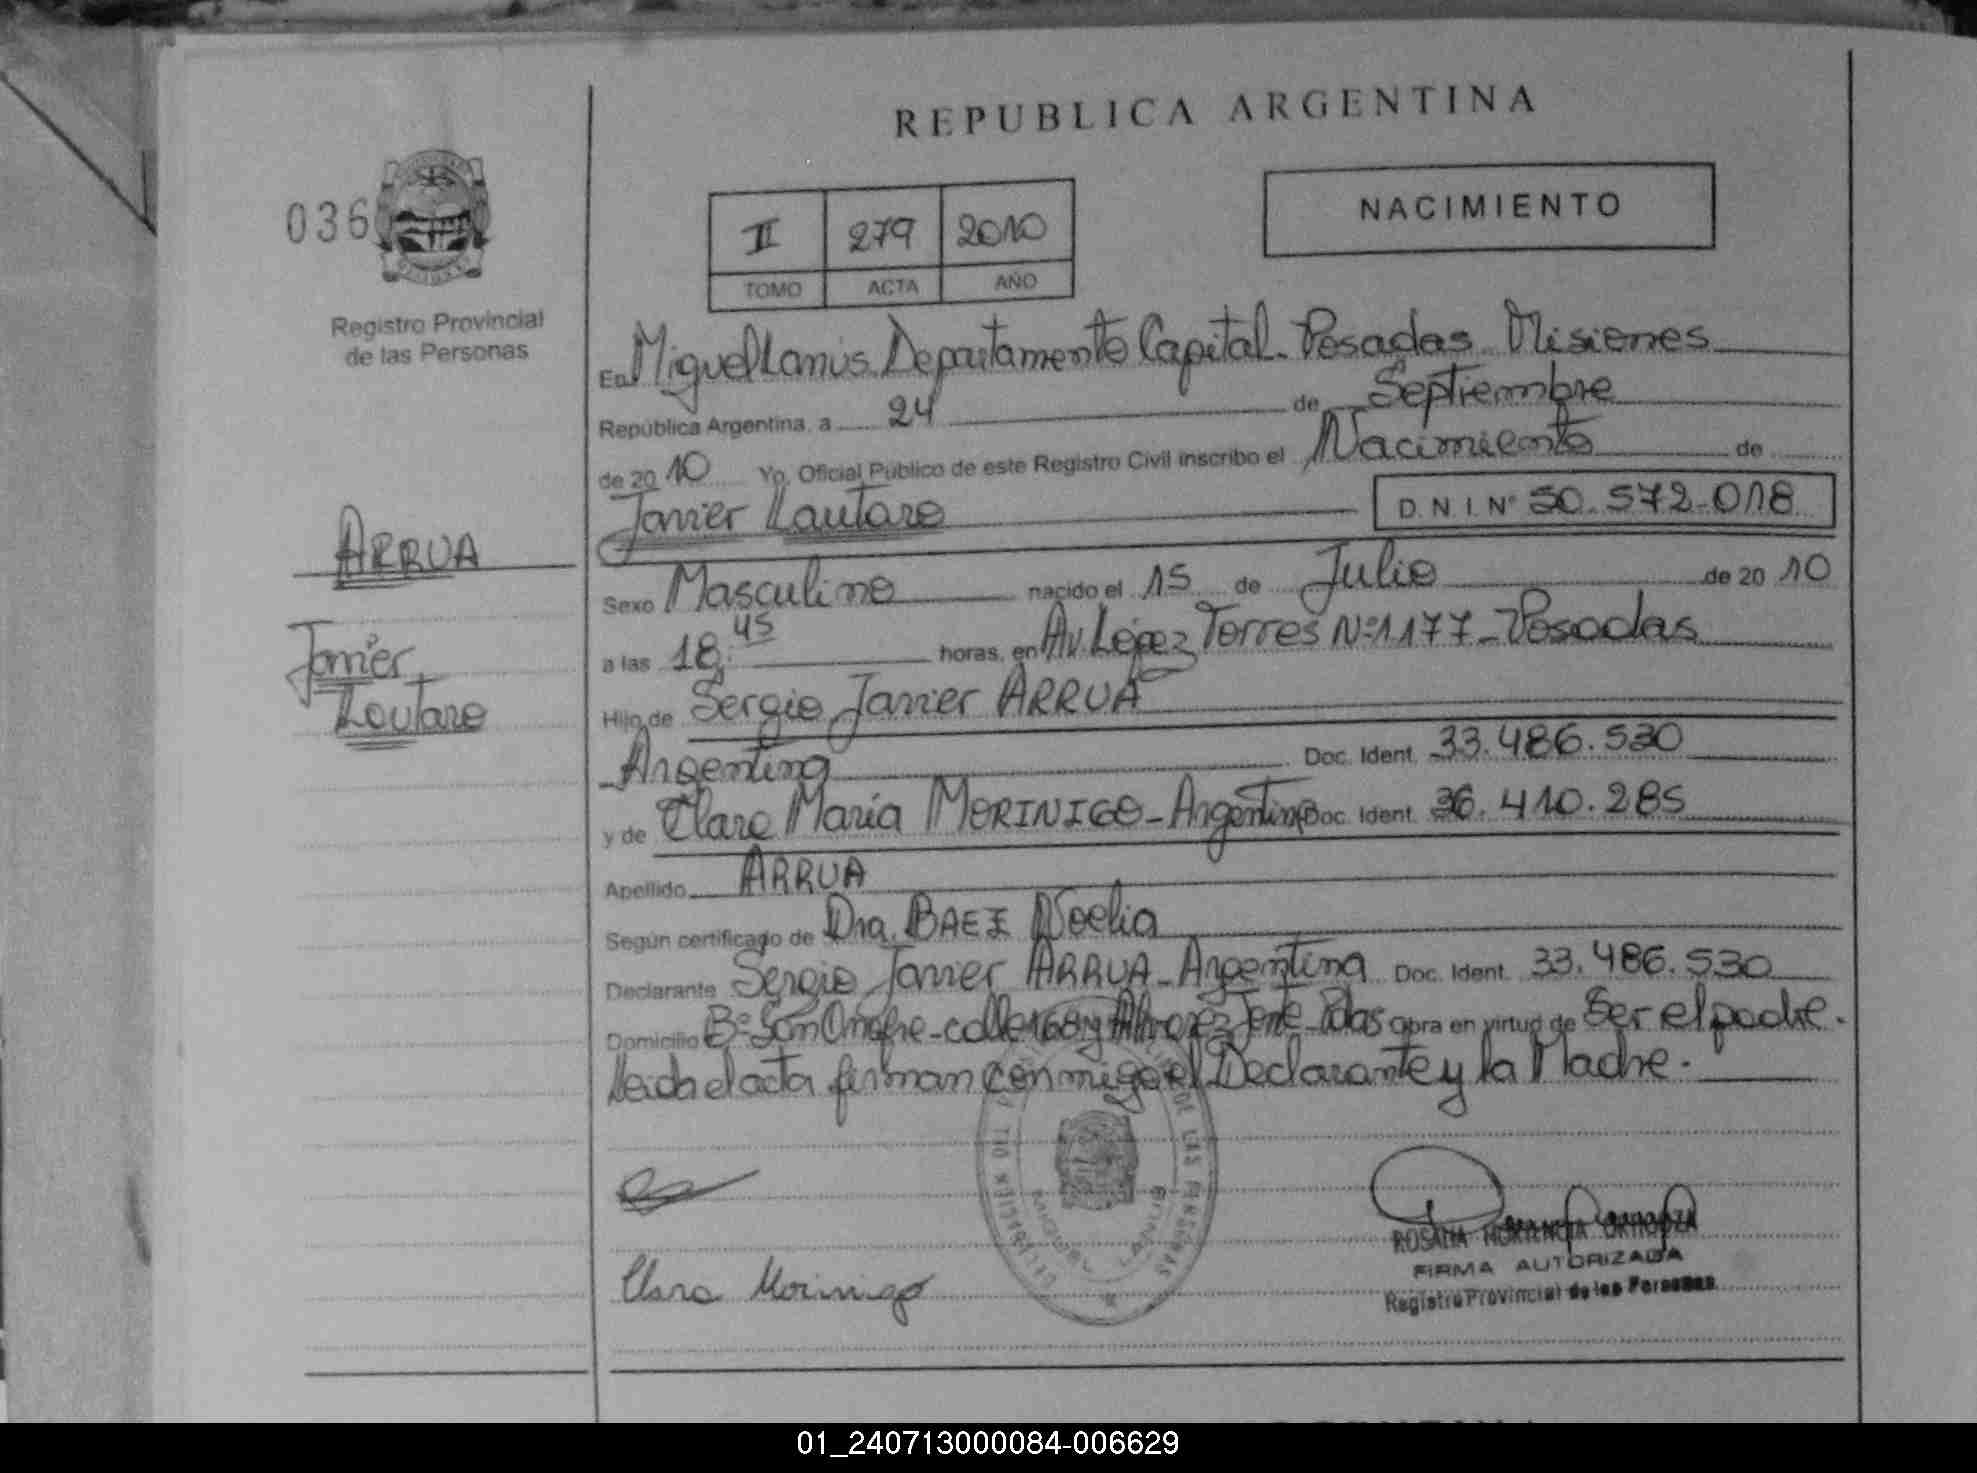 REPUBLICA ARGENTINA
036
Registro Provincial
de las Personas
II 279 2010
TOMO ACTA AÑO
NACIMIENTO
En Miguel Lanus Departamento Capital - Posadas Misiones
República Argentina, a 24 de Septiembre
de 2010 Yo, Oficial Público de este Registro Civil inscribo el Nacimiento de
Javier Lautaro D.N.I. N° 50.572.018
ARRUA
Javier
Lautaro
Sexo Masculino nacido el 15 de Julio de 2010
a las 18:45 horas, en Av. López Torres Nº 1177 - Posadas
Hijo de Sergio Javier ARRUA
Argentina Doc. Ident. 33.486.530
y de Clara María MORINIGO - Argentina Doc. Ident. 36.410.285
Apellido ARRUA
Según certificado de Dra. BAEZ Noelia
Declarante Sergio Javier ARRUA - Argentina Doc. Ident. 33.486.530
Domicilio Bº San Onofre - calle 168 y Alvarez Jonte - Pdas Obra en virtud de Ser el padre.
Leida el acta firman conmigo el Declarante y la Madre.
DE LAS PERSONAS
MIGUEL LANUS
Clara Morinigo
ROSANA HORTENCIA
FIRMA AUTORIZADA
Registro Provincial de las Personas
01_240713000084-006629